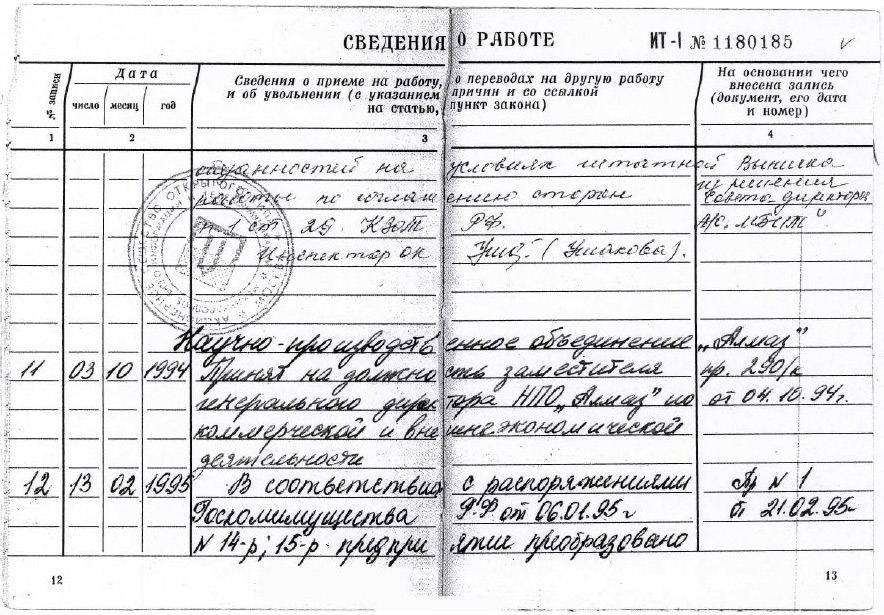 СВЕДЕНИЯ О РАБОТЕ ИТ-I № 1180185
№ записи
Дата
число месяц год
Сведения о приеме на работу, о переводах на другую работу
и об увольнении (с указанием причин и со ссылкой
на статью, пункт закона)
На основании чего
внесена запись
(документ, его дата
и номер)
1 2 3 4
на условиях штатной Выписка
работы по соглашению сторон из решения
Совета директоров
п 1 ст 29 КЗоТ РФ. А/О „МБИТ"
Инспектор ОК (Ушакова).
Научно-производственное объединение „Алмаз"
11 03 10 1994 Принят на должность заместителя пр. 290/к
генерального директора НПО „Алмаз" по от 04.10.94г.
коммерческой и внешнеэкономической
деятельности
12 13 02 1995 В соответствии с распоряжениями Пр N 1
Госкомимущества РФ от 06.01.95г от 21.02.95г
N 14-р; 15-р предприятие преобразовано
12 13